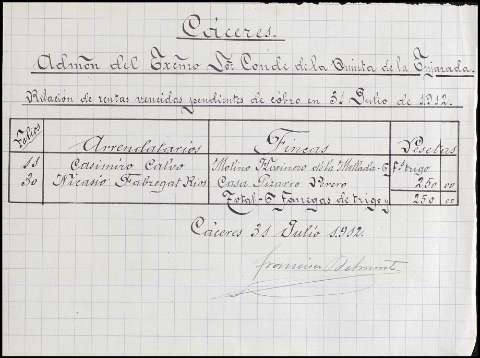 Cáceres.
Admón del Excmo Sor. Conde de la Quinta de la Enjarada.
Relación de rentas vencidas pendientes de cobro en 31 Julio de 1912.
Folios Arrendatarios Fincas Pesetas
11 Casimiro Calvo Molino Harinoso de la Mollada - 6 Fs trigo
30 Nicasio Fabregat Rios Casa Pizarro 250 00
Total - 6 Fanegas de trigo y 250 00
Cáceres 31 Julio 1912.
Francisco Belmonte